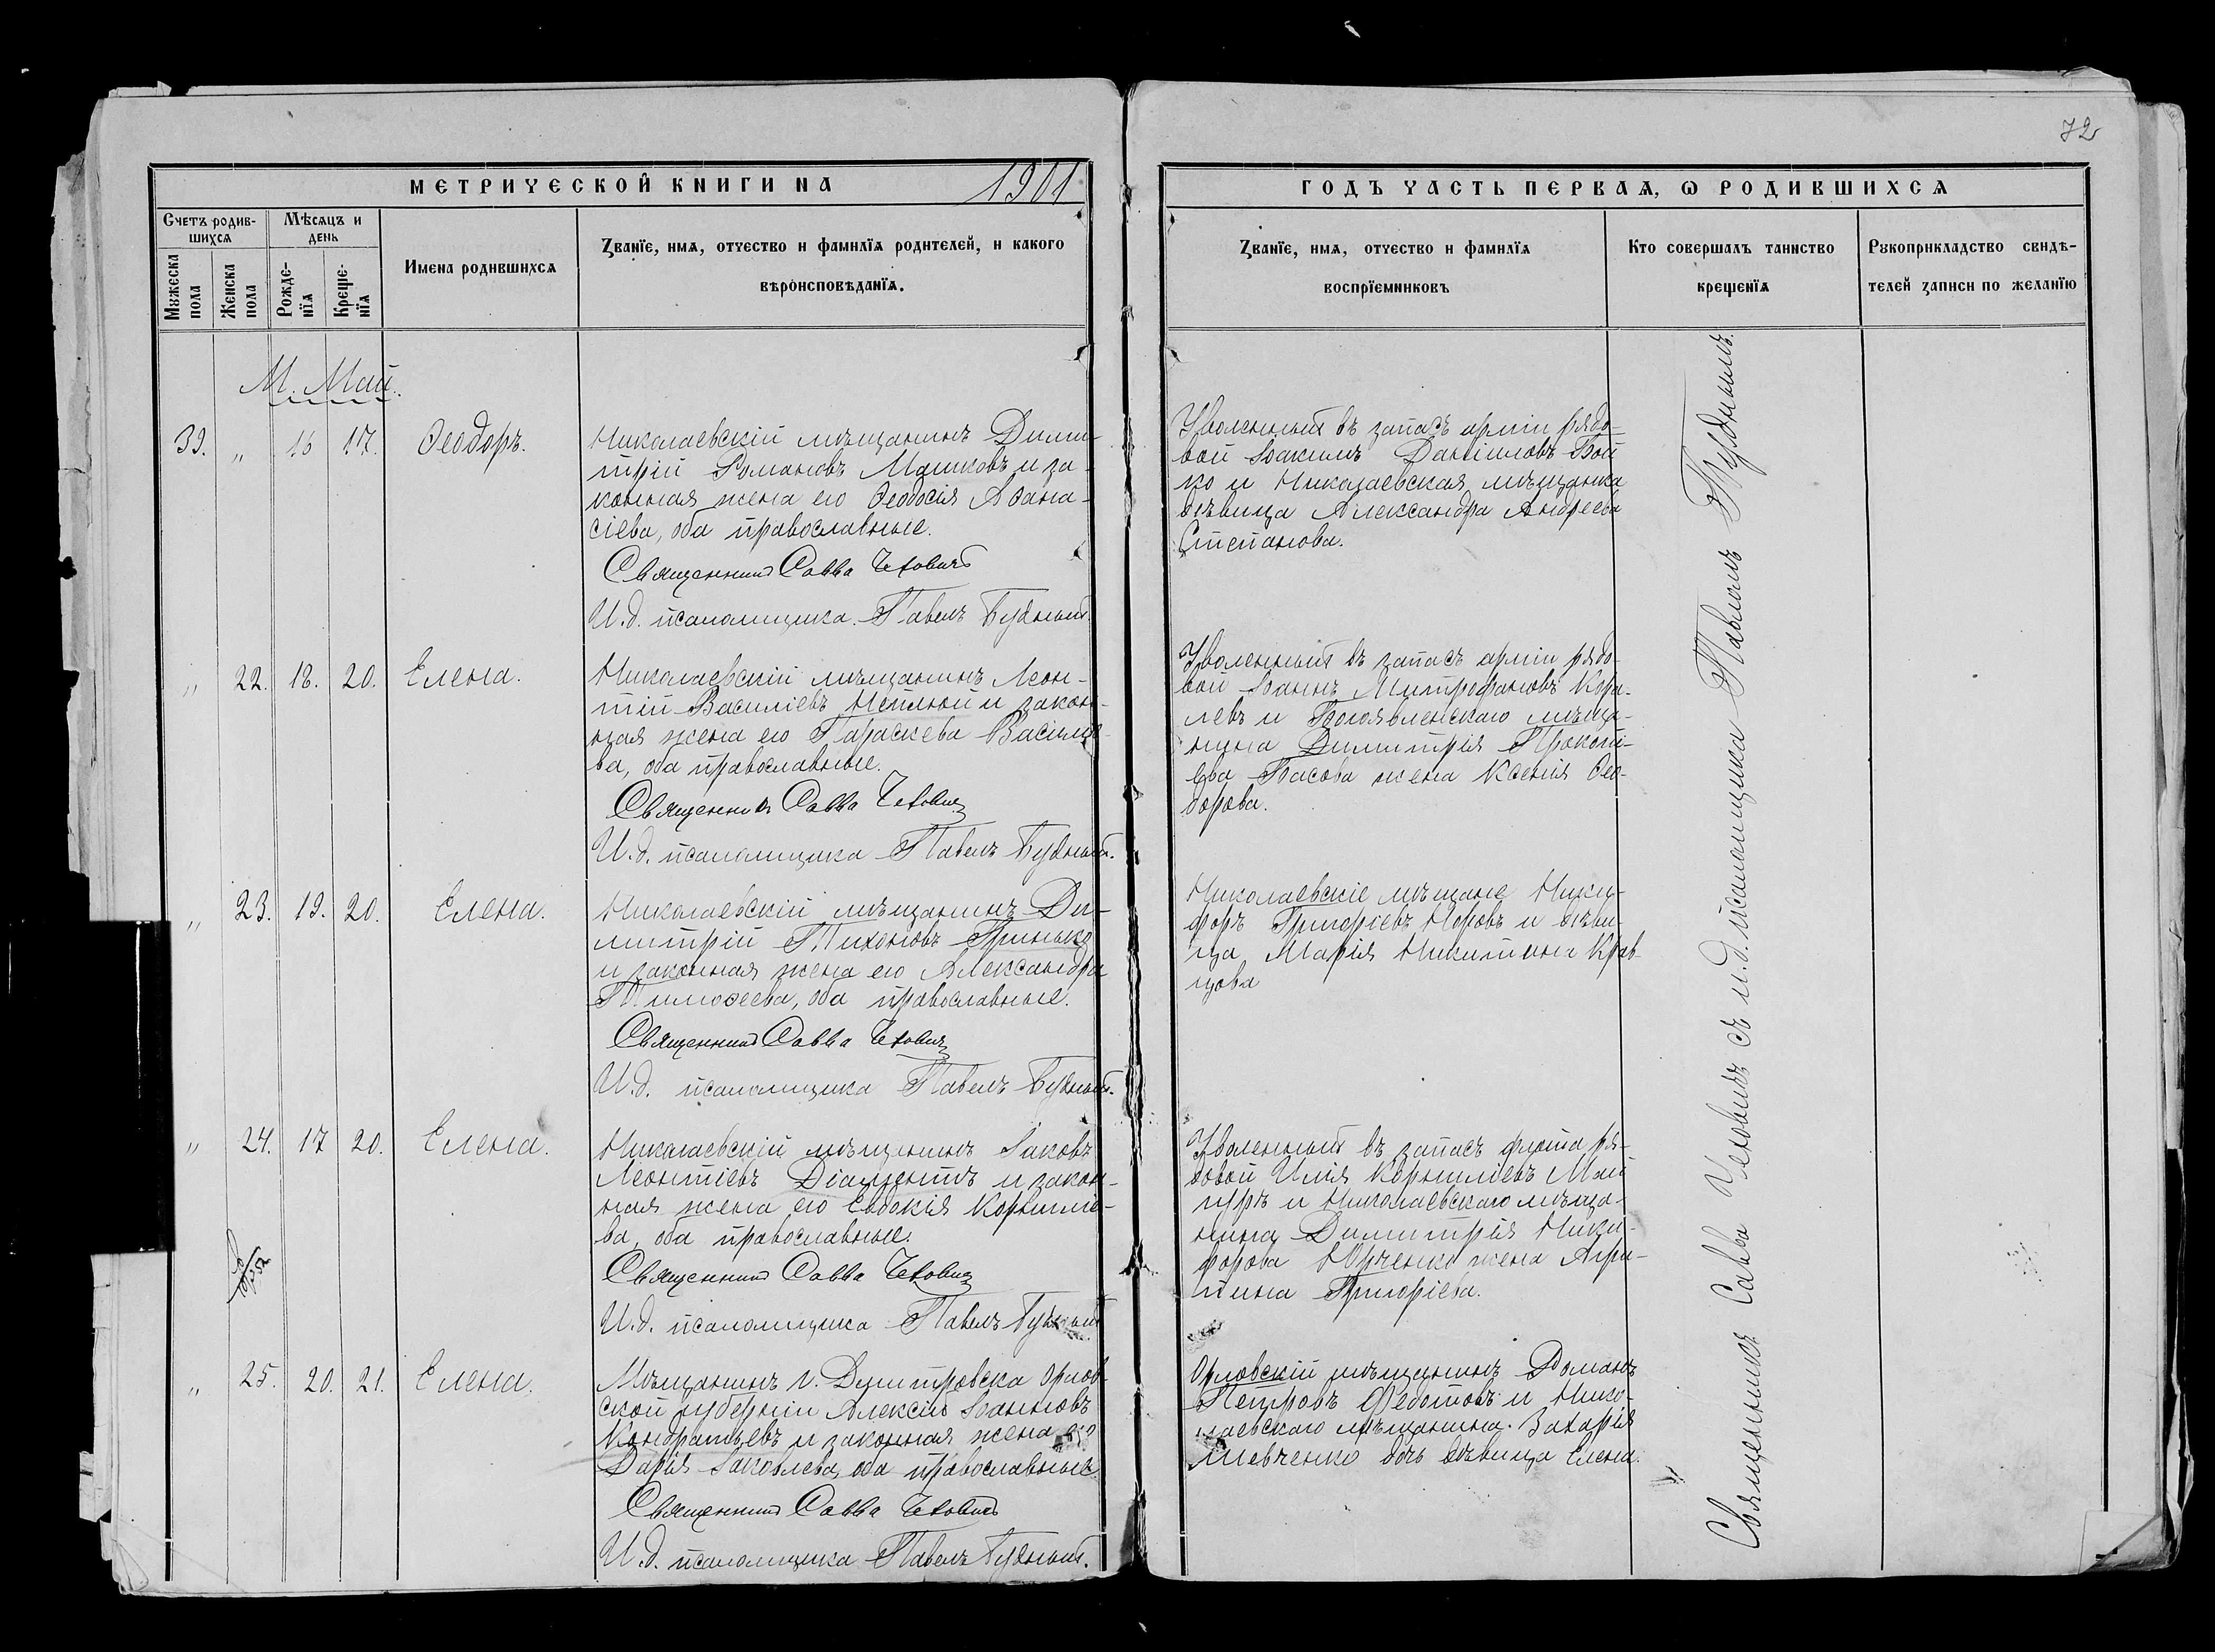 72
МЕТРИЧЕСКОЙ КНИГИ НА 1901
ГОДЪ ЧАСТЬ ПЕРВАѦ, Ѡ РОДИВШИХСѦ
Счетъ родив-
шихсѧ
Мѣсѧцъ и
день
Мꙋжеска
пола
Женска
пола
Рожде-
нїѧ
Креще-
нїѧ
Имена родившихсѧ
Званїе, имѧ, отчество и фамилїѧ родителей, и какого
вѣроисповѣданїѧ.
Званїе, имѧ, отчество и фамилїѧ
воспрїемниковъ
Кто совершалъ таинство
крещенїѧ
Рꙋкоприкладство свидѣ-
телей записи по желанїю
М. Май.
39. „ 16 17. Ѳеодоръ.
Николаевскій мѣщанинъ Дими-
трій Романовъ Машковъ и за-
конная жена его Ѳеодосія Аѳана-
сіева, оба православные.
Священникъ Савва Чеховичъ
И.д. псаломщика Павелъ Будный.
Уволенный въ запасъ арміи рядо-
вой Іоакимъ Даніиловъ Бой
ко и Николаевская мѣщанка
дѣвица Александра Андреева
Степанова.
„ 22. 18. 20. Елена.
Николаевскій мѣщанинъ Леон-
тій Василіевъ и закон-
ная жена его Параскева Василіе-
ва, оба православные.
Священникъ Савва Чеховичъ
И.д. псаломщика Павелъ Будный.
Уволенный въ запасъ арміи рядо-
вой Іоаннъ Митрофановъ Кора-
левъ и Богоявленскаго мѣща-
нина Димитрія Прокопі-
ева Басова жена Ксенія Ѳео-
дорова.
„ 23. 19. 20. Елена.
Николаевскій мѣщанинъ Ди-
митрій Тихоновъ Гринько
и законная жена его Александра
Тимоѳеева, оба православные.
Священникъ Савва Чеховичъ
И.д. псаломщика Павелъ Будный.
Николаевскіе мѣщане Ники-
форъ Григоріевъ Норовъ и дѣви-
ца Марія Никитина Крав-
цова
„ 24. 17 20. Елена.
Николаевскій мѣщанинъ Іаковъ
Леонтіевъ Діамантъ и закон-
ная жена его Евдокія Корниліе-
ва, оба православные.
Священникъ Савва Чеховичъ
И.д. псаломщика Павелъ Будный
Уволенный въ запасъ флота ря-
довой Илія Корниліевъ Май
и Николаевскаго мѣща-
нина Димитрія Ники-
форова Юрченко жена Агри-
пина Григоріева.
„ 25. 20. 21. Елена.
Мѣщанинъ г. Димитровска Орлов-
ской губерніи Алексій Іоанновъ
Кондратьевъ и законная жена его
Дарія Іаковлева, оба православные.
Священникъ Савва Чеховичъ
И.д. псаломщика Павелъ Будный.
Орловскій мѣщанинъ Романъ
Петровъ Ѳедотовъ и Нико-
лаевскаго мѣщанина Захарія
Шевченко дочь дѣвица Елена.
Священникъ Савва Чеховичъ съ и.д. псаломщика Павломъ Буднымъ.